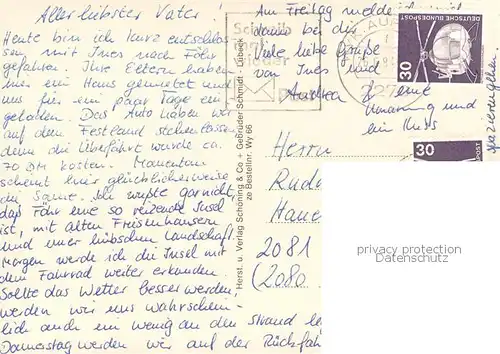 Allerliebster Vater!
Heute bin ich kurz entschlos
sen mit Ines nach Föhr
gefahren. Ihre Eltern haben
hier ein Haus gemietet und
uns für ein paar Tage ein
geladen. Das Auto haben wir
auf dem Festland stehenlassen,
denn die Überfahrt würde ca.
70 DM kosten. Momentan
scheint hier glücklicherweise
die Sonne. Ich wußte gar nicht,
das Föhr eine so reizende Insel
ist, mit alten Friesenhäusern
und einer hübschen Landschaft.
Morgen werde ich die Insel mit
dem Fahrrad weiter erkunden.
Sollte das Wetter besser werden,
werden wir uns wahrschein-
lich auch ein wenig an den Strand le
Donnerstag werden wir auf der Rückfahr
Am Freitag melde
dann bei dir
Viele liebe Grüße
von Ines und
Andrea
Schreib
mal
wieder
Herst. u. Verlag Schöning & Co + Gebrüder Schmidt - Lübeck
ze Bestellnr. Wy 66
DEUTSCHE BUNDESPOST
30
30
POST
eine
Umarmung und
ein Kuss
spazierengehen
Herrn
Rudo
Haue
2081
(2080
privacy protection
Datenschutz